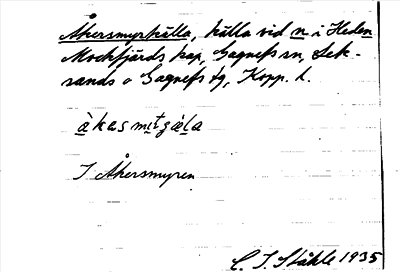 Åkersmyrkälla, källa vid n. i Heden
Mockfjärds kap, Gagnefs sn, Lek-
sands o Gagnefs tg, Kopp. l.
I Åkersmyren
C. I. Ståhle 1935